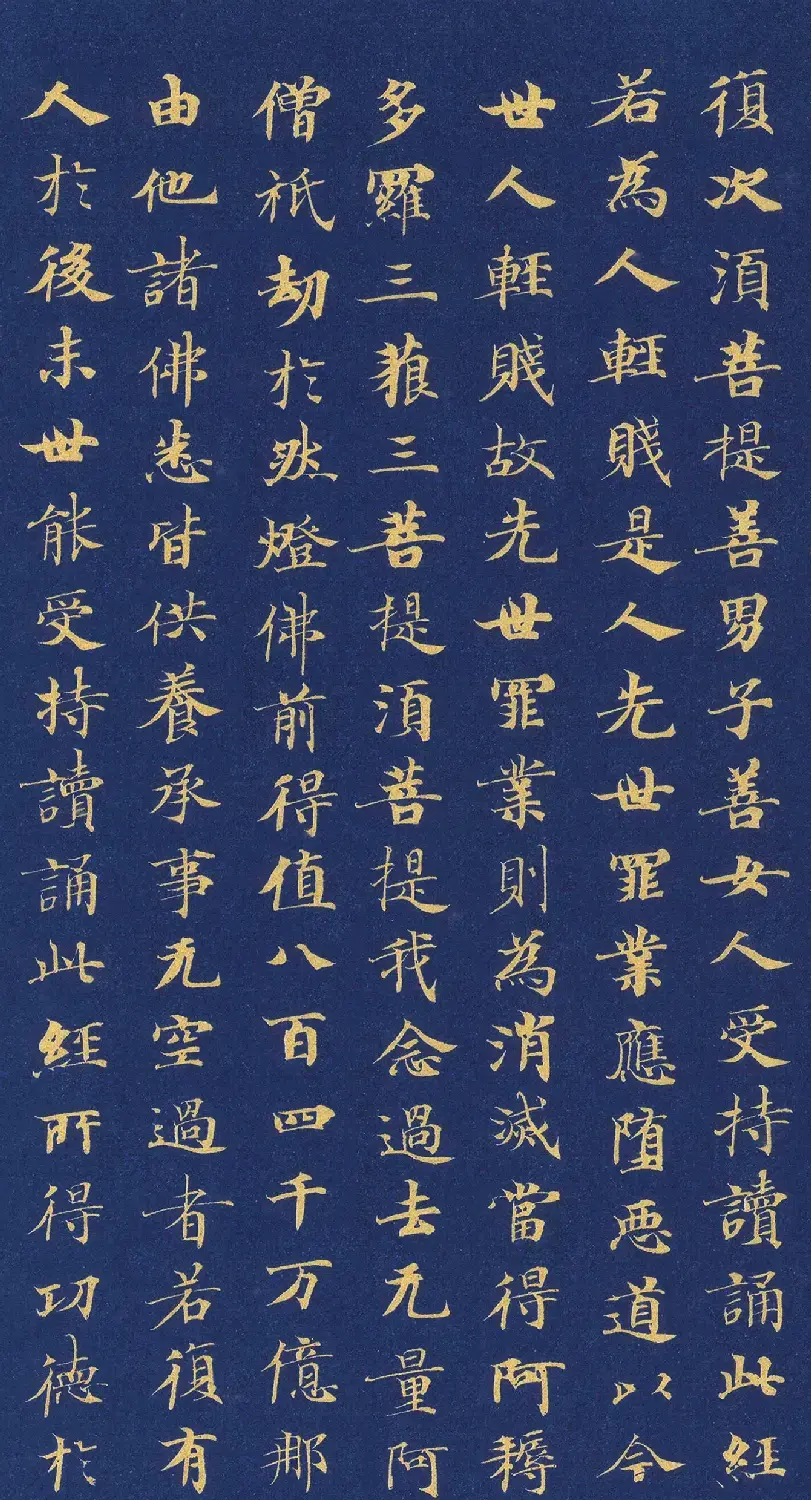 復次須菩提善男子善女人受持讀誦此經
若為人輕賤是人先世罪業應堕惡道以今
世人輕賤故先世罪業則為消滅當得阿耨
多羅三藐三菩提須菩提我念過去无量阿
僧祇劫於然燈佛前得值八百四千万億那
由他諸佛悉皆供養承事无空過者若復有
人於後末世能受持讀誦此經所得功德於